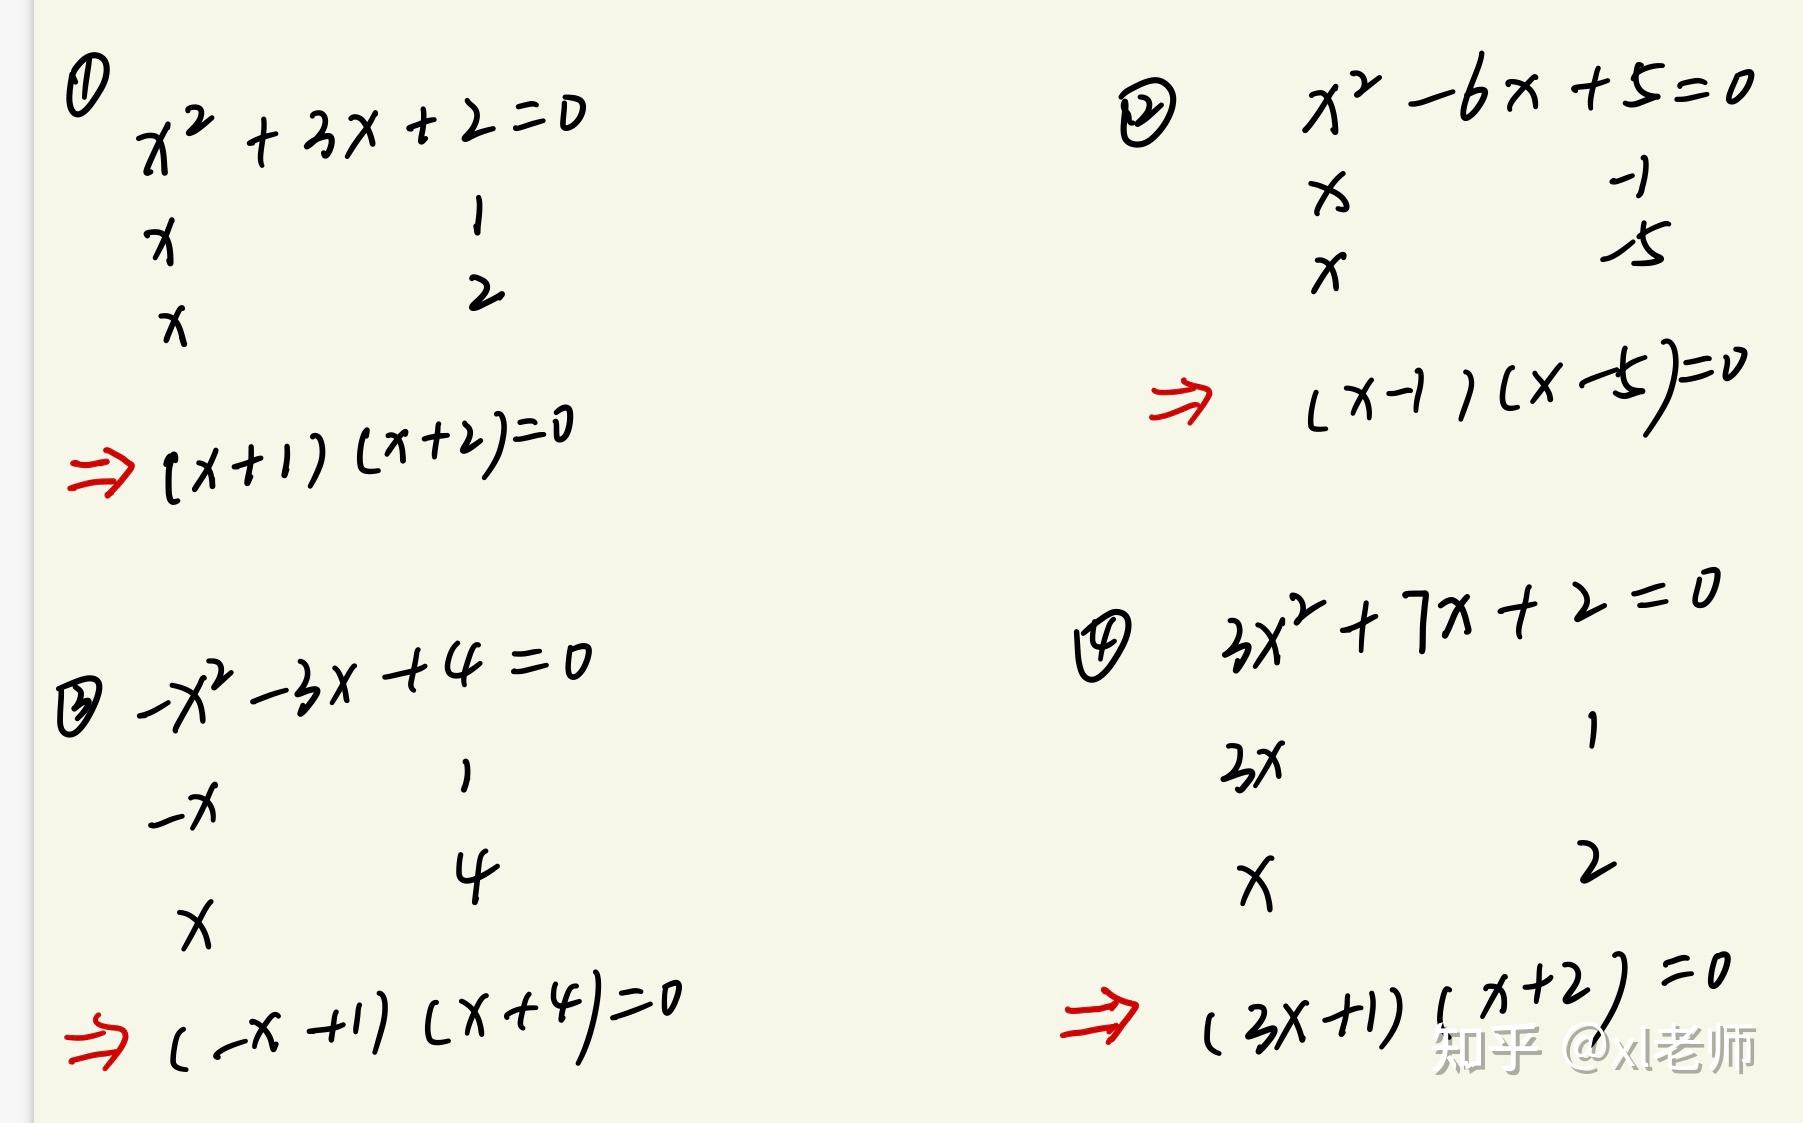 ① x² + 3x + 2 = 0
x 1
x 2
⇒ (x + 1) (x + 2) = 0
② x² - 6x + 5 = 0
x -1
x -5
⇒ (x - 1) (x - 5) = 0
③ -x² - 3x + 4 = 0
-x 1
x 4
⇒ (-x + 1) (x + 4) = 0
④ 3x² + 7x + 2 = 0
3x 1
x 2
⇒ (3x + 1) (x + 2) = 0
知乎 @xl老师